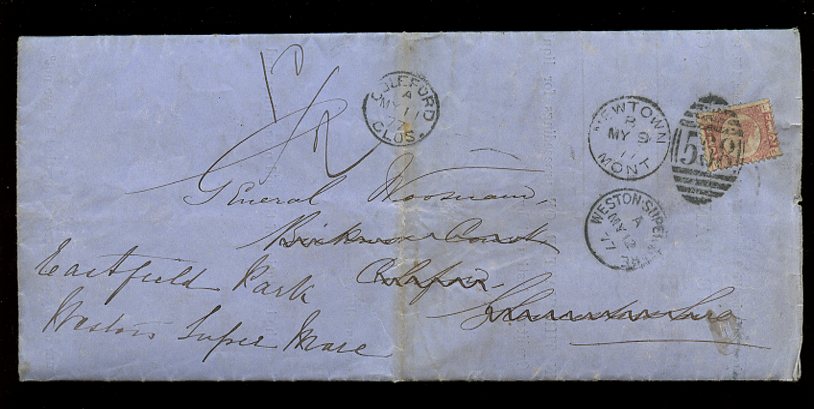 COLEFORD
A
MY 11
77
GLOS.
NEWTOWN
MY 9
77
MONT
558
WESTON-SUPER
A
MY 12
77
General Woosnam,
Court
Coleford
Gloucestershire
Eastfield Park
Weston Super Mare